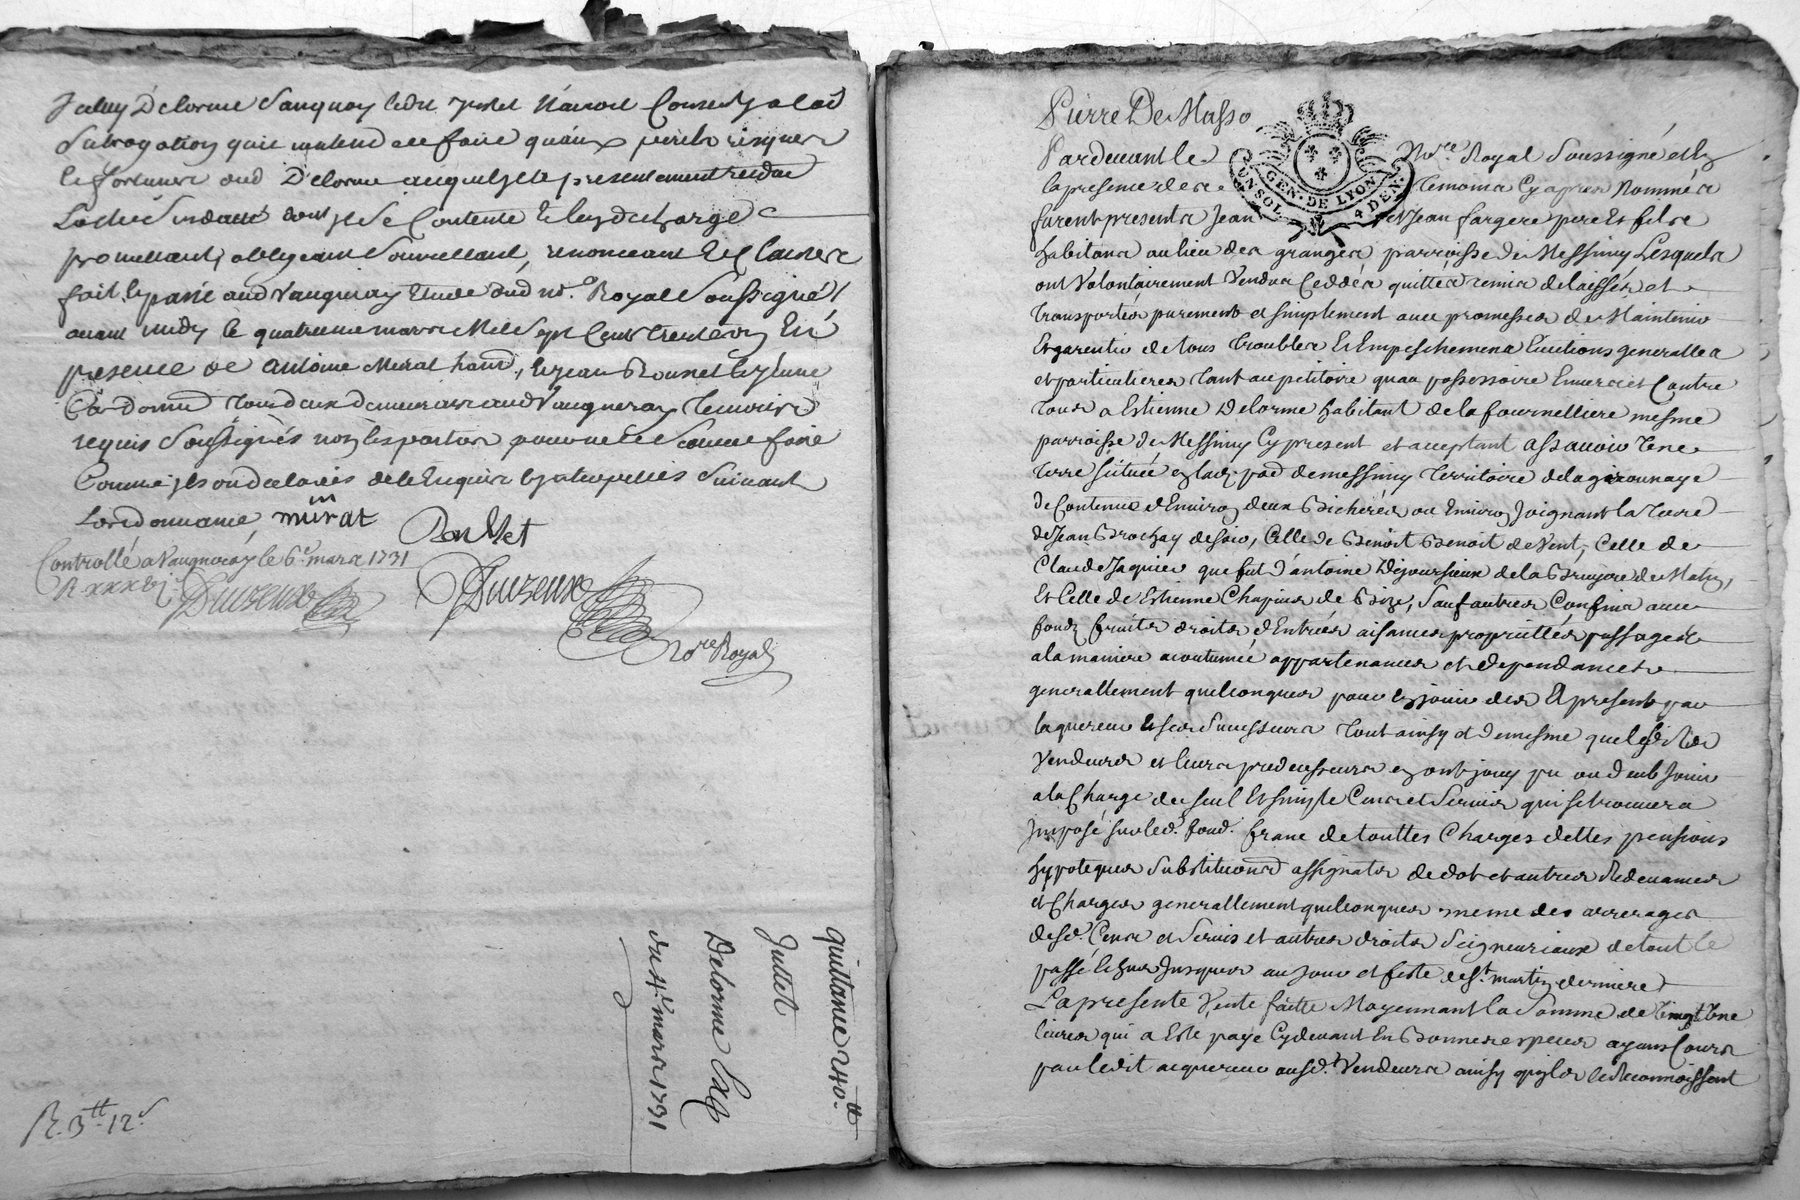 Delorme ledit Juttet
subrogation faire quaux perils risques
& fortunes dud Delorme auquel presentement
dont se contente
promettant, obligeant soumettant, renonceant Et Clauses
fait & passé aud Vaugneray Etude dud no.re Royal Soussigné
avant midy le quatrieme mars Mil Sept Cent trente & un En
presence de antoine Murat , & jean Bonnet
tous deux demeurants aud Vaugneray temoins
requis Soussignés non les parties pour ne le Scavoir faire
Comme ils ont declarés de ce Enquis & interpellés Suivant
Lordonnance, mûrat
Controllé a Vaugneray le 6.e mars 1731
R
no.re Royal
quittance 240.tt
Juttet
Delorme
du 4.e mars 1731
R. 3.tt 12.s
Pierre De Masso
Pardevant le No.re Royal Soussigné et En
la presence des temoins Cy apres Nommés
GEN. DE LYON
4 DEN.
furent presents Jean et Jean fargere pere Et fils
habitans au lieu des granges parroisse de Messimy Lesquels
ont Volontairement Vendus Ceddés quittés remis delaissés et
transportés purement et simplement avec promesses de Maintenir
Et garentir de tous troubles Et Empeschements Evictions generalles
et particulieres tant au petitoire quau possessoire Envers et Contre
tous a Estienne Delorme habitant de la fournelliere mesme
parroisse de Messimy Cy present et acceptant assavoir Une
terre située en lad. paro. de messimy territoire de la garounaye
de Contenue d'Environ deux Bicherées ou Environ Joignant la terre
de Jean Brochay de soir, Celle de Benoît Benoit de Vent, Celle de
Claude Jaquier que fut d'antoine Dejoursieux de la Bruyere de Matin,
Et Celle de Estienne Chapuis de Bize, Sauf autres Confins avec
fonds fruits droits d'Entrées aisances proprietés passages &
a la maniere acoutumée appartenances et dependances
generallement quelconques pour En jouir des A present par
laquereur Et ses Successeurs tout ainsy et demesme que lesdits
Vendeurs et leurs predecesseurs en ont jouy pu ou deub jouir
a la Charge de seul Et simple Cens et Servis qui se trouvera
Imposé sur led. fond. franc de touttes Charges dettes pensions
hypoteques Substitutions assignats de dot et autres Redevances
et Charges generallement quelconques meme des arrerages
desd. Cens et Servis et autres droits Seigneuriaux de tout le
passé & Jusques au Jour et feste de St. martin derniere
La presente Vente faitte Moyennant la Somme de Vingt Une
livres qui a Esté payé Cy devant En Bonnes especes ayans Cours
par ledit acquereur ausd. Vendeurs ainsy quils le Reconnoissent